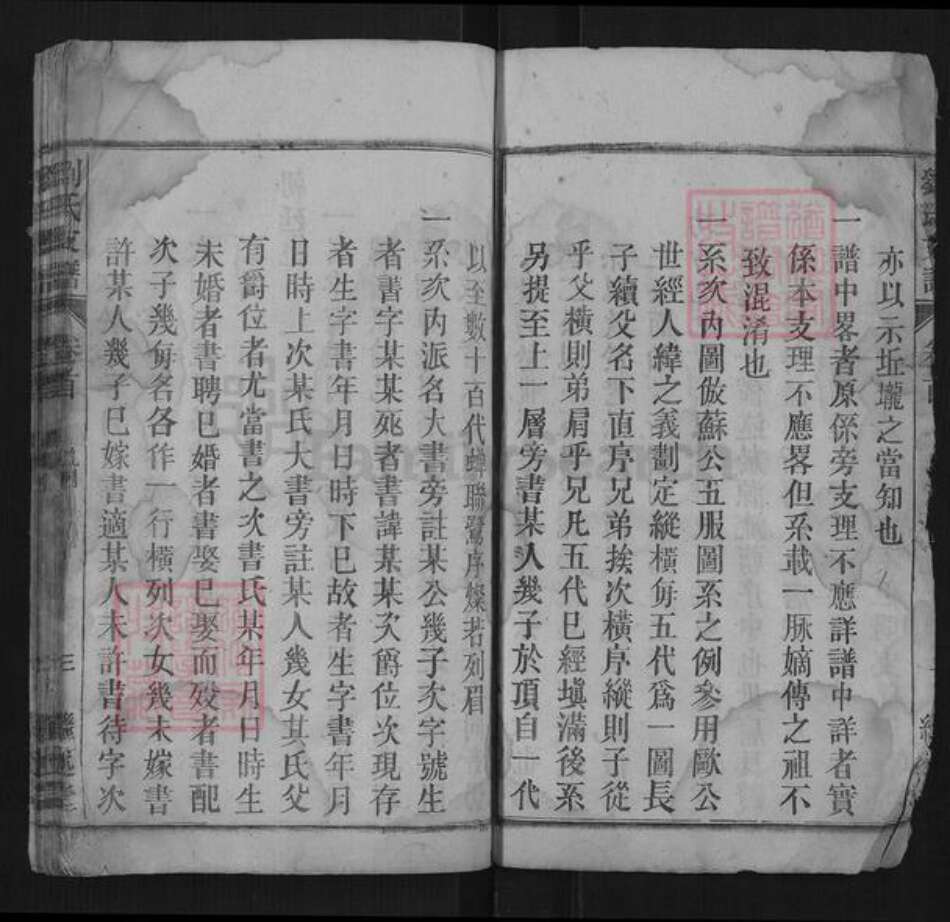 亦以示坵壠之當知也
一譜中畧者原係旁支理不應詳譜中詳者實
係本支理不應畧但系載一脉嫡傳之祖不
致混淆也
一系次內圖倣蘇公五服圖系之例參用歐公
世經人緯之義劃定縱橫每五代爲一圖長
子續父名下直序兄弟挨次橫序縱則子從
乎父橫則弟肩乎兄凡五代已經塡滿後系
另提至上一層旁書某人幾子於項自一代
以至數十百代蟬聯鷺序燦若列眉
一系次內派名大書旁註某公幾子次字號生
者書字某某死者書諱某某次爵位次現存
者生字書年月日時下已故者生字書年月
日時上次某氏大書旁註某人幾女其氏父
有爵位者尤當書之次書氏某年月日時生
未婚者書聘已婚者書娶已娶而歿者書配
次子幾每名各作一行橫列次女幾未嫁書
許某人幾子已嫁書適某人未許書待字次
劉氏支譜
卷首
三